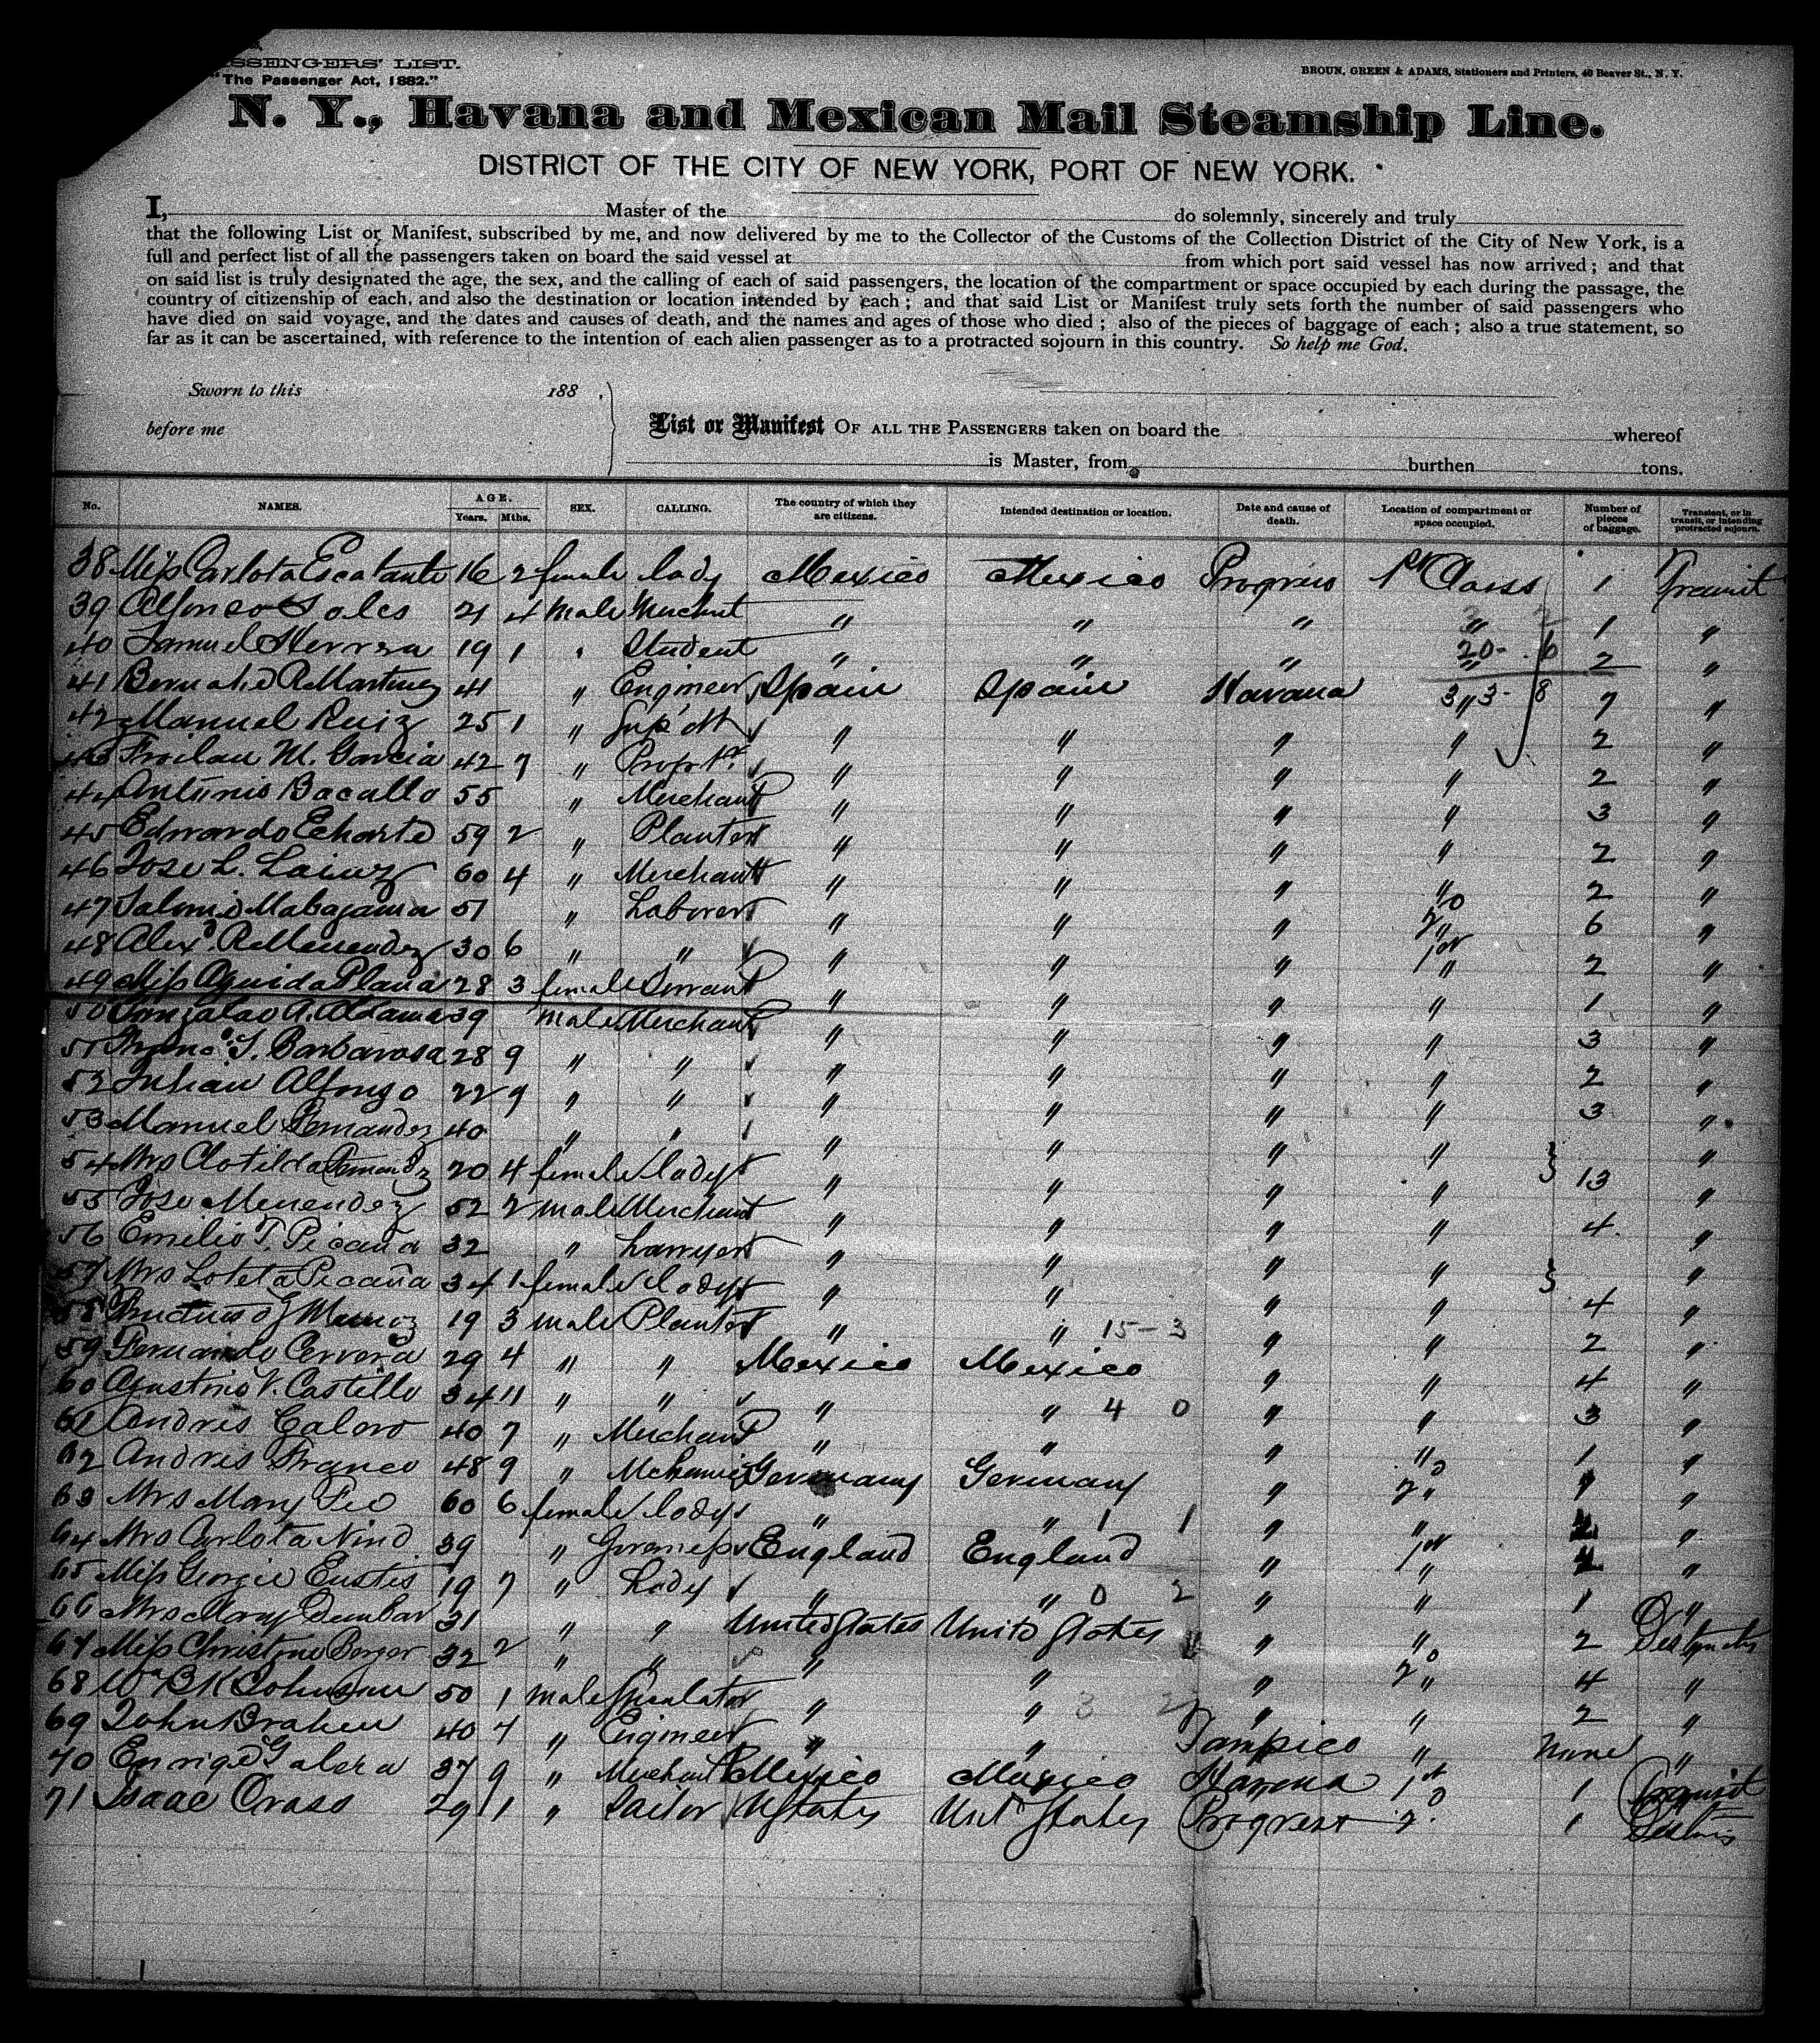 SSENGERS' LIST.
"The Passenger Act, 1882."
BROUN, GREEN & ADAMS, Stationers and Printers, 40 Beaver St., N. Y.
N. Y., Havana and Mexican Mail Steamship Line.
DISTRICT OF THE CITY OF NEW YORK, PORT OF NEW YORK.
I, Master of the do solemnly, sincerely and truly
that the following List or Manifest, subscribed by me, and now delivered by me to the Collector of the Customs of the Collection District of the City of New York, is a
full and perfect list of all the passengers taken on board the said vessel at from which port said vessel has now arrived; and that
on said list is truly designated the age, the sex, and the calling of each of said passengers, the location of the compartment or space occupied by each during the passage, the
country of citizenship of each, and also the destination or location intended by each; and that said List or Manifest truly sets forth the number of said passengers who
have died on said voyage, and the dates and causes of death, and the names and ages of those who died; also of the pieces of baggage of each; also a true statement, so
far as it can be ascertained, with reference to the intention of each alien passenger as to a protracted sojourn in this country. So help me God.
Sworn to this 188 .
before me
List or Manifest OF ALL THE PASSENGERS taken on board the whereof
is Master, from burthen tons.
No. NAMES. AGE. Years. Mths. SEX. CALLING. The country of which they are citizens. Intended destination or location. Date and cause of death. Location of compartment or space occupied. Number of pieces of baggage. Transient, or in transit, or intending protracted sojourn.
38 Miss Carlota Escalante 16 2 female lady Mexico Mexico Progreso 1st Class 1 Transit
39 Alfonso 21 4 Male " " " " 1 "
40 Samuel Herrera 19 1 Student " " " " 2 "
41 R Martinez 41 " Engineer Spain Spain Havana " 7 "
42 Manuel Ruiz 25 1 " " " " " 2 "
43 Froilan M. Garcia 42 7 " " " " " 2 "
44 Antunio Bacallo 55 " Merchant " " " " 3 "
45 Edwardo Echarte 59 2 " Planter " " " " 2 "
46 Jose L. 60 4 " Merchant " " " " 2 "
47 51 " Laborer " " " 2 6 "
48 30 6 " " " " " 1st 2 "
49 Miss Plana 28 3 female Servant " " " " 1 "
50 39 male Merchant " " " " 3 "
51 Barbarosa 28 9 " " " " " " 2 "
52 Julian Alfonso 22 9 " " " " " " 3 "
53 Manuel Fernandez 40 " " " " " " "
54 Mrs Clotilda Fernandez 20 4 female lady " " " " 13 "
55 Jose Menendez 52 2 male Merchant " " " " 4 "
56 Emilio T. Picaña 32 " Lawyer " " " " "
57 Mrs Loleta Picaña 34 1 female lady " " " " 4 "
58 19 3 male Planter " " 15-3 " " 2 "
59 Fernando Cervera 29 4 " " Mexico Mexico " " 4 "
60 Agustino V. Castillo 34 11 " " " " 4 0 " " 3 "
61 Andres Calero 40 7 " Merchant " " " " 1 "
62 Andres Franco 48 9 " Mechanic Germany Germany " 2 "
63 Mrs Mary 60 6 female lady " " 1 1 " " "
64 Mrs Carlota Nind 39 " Governess England England " 1st "
65 Miss Georgie Eustis 19 7 " Lady " " 0 2 " " 1 "
66 Mrs Mary Dunbar 31 " " United States United States " " 2
67 Miss Christine Berger 32 2 " " " " " 2 4 "
68 Wm B K Johnson 50 1 male Speculator " " " " 2 "
69 John Braken 40 7 " Engineer " " Tampico " None "
70 Enrique Galera 37 9 " Merchant Mexico Mexico Havana 1st 1 Transit
71 Isaac 29 1 " Sailor U States Unit States Progreso 2 1